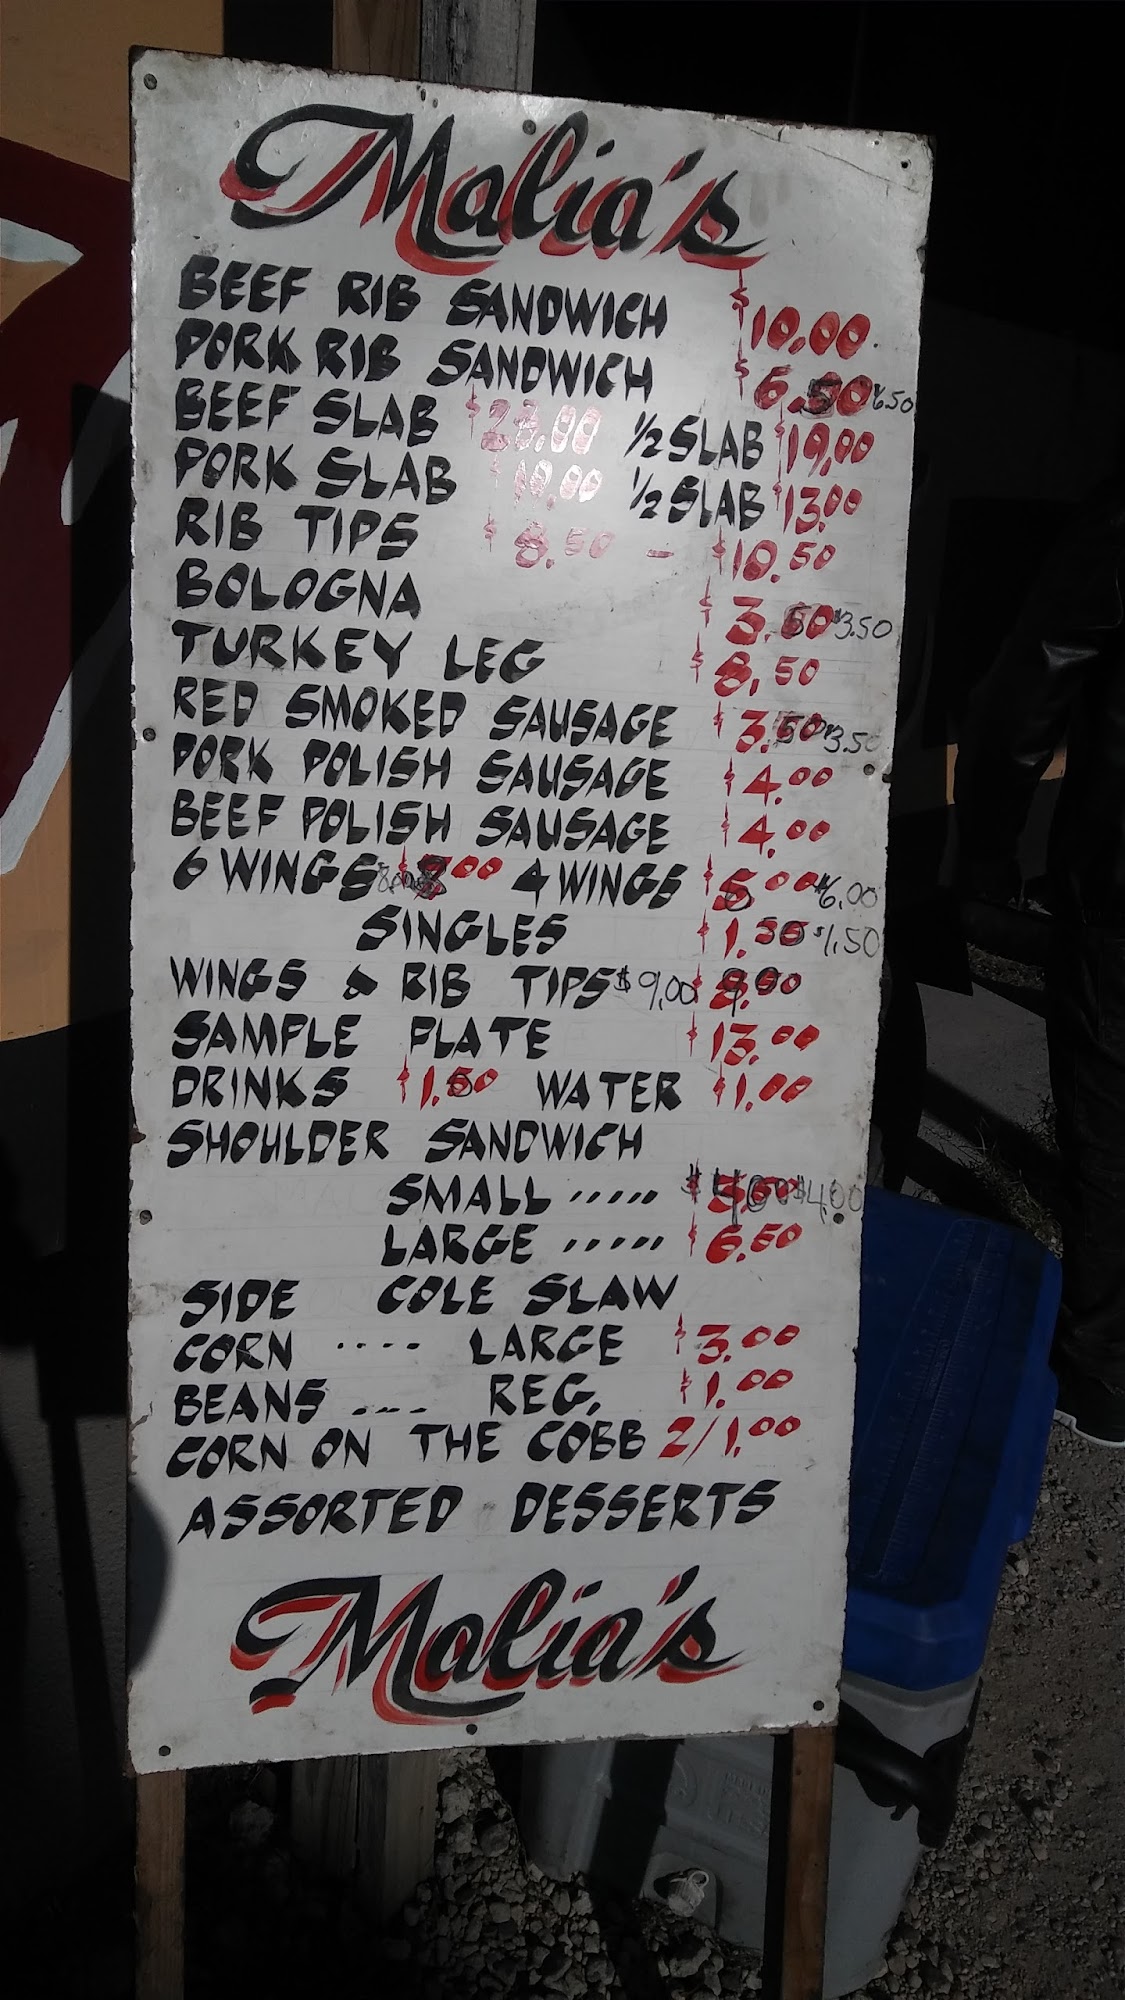 Malia's
BEEF RIB SANDWICH $10.00
PORK RIB SANDWICH $6.50 6.50
BEEF SLAB $23.00 1/2 SLAB $19.00
PORK SLAB $19.00 1/2 SLAB $13.00
RIB TIPS $8.50 - $10.50
BOLOGNA $3.50 $3.50
TURKEY LEG $8.50
RED SMOKED SAUSAGE $3.50 $3.50
PORK POLISH SAUSAGE $4.00
BEEF POLISH SAUSAGE $4.00
6 WINGS 8.00 $8.00 4 WINGS $6.00 $6.00
SINGLES $1.50 $1.50
WINGS & RIB TIPS $9.00 $9.00
SAMPLE PLATE $13.00
DRINKS $1.50 WATER $1.00
SHOULDER SANDWICH
SMALL ..... $4.00 $4.00
LARGE ..... $6.50
SIDE COLE SLAW
CORN .... LARGE $3.00
BEANS .... REG. $1.00
CORN ON THE COBB 2/1.00
ASSORTED DESSERTS
Malia's